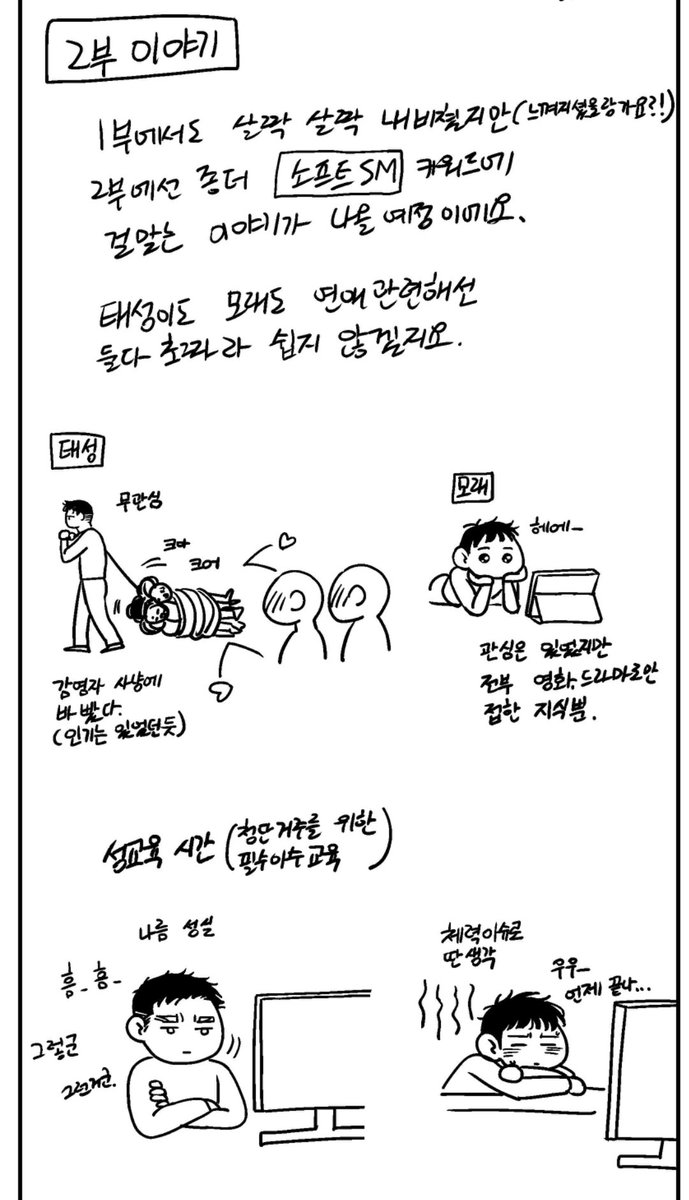 2부 이야기
1부에서도 살짝 살짝 내비췄지만(느껴지셨을랑가요?!)
2부에선 좀더 소프트SM 키워드에
걸맞는 이야기가 나올 예정이에요.
태성이도 모래도 연애관련해선
둘다 초짜라 쉽지 않겠지요.
태성
무관심
크아
크어
감염자 사냥에
바빴다.
(인기는 있었던듯)
모래
헤에-
관심은 있었지만
전부 영화, 드라마로만
접한 지식뿐.
성교육 시간 (첨단거주를 위한
필수이수교육)
나름 성실
흠- 흠-
그렇군
그런거군.
체력이슈로
딴생각
우우-
언제 끝나...